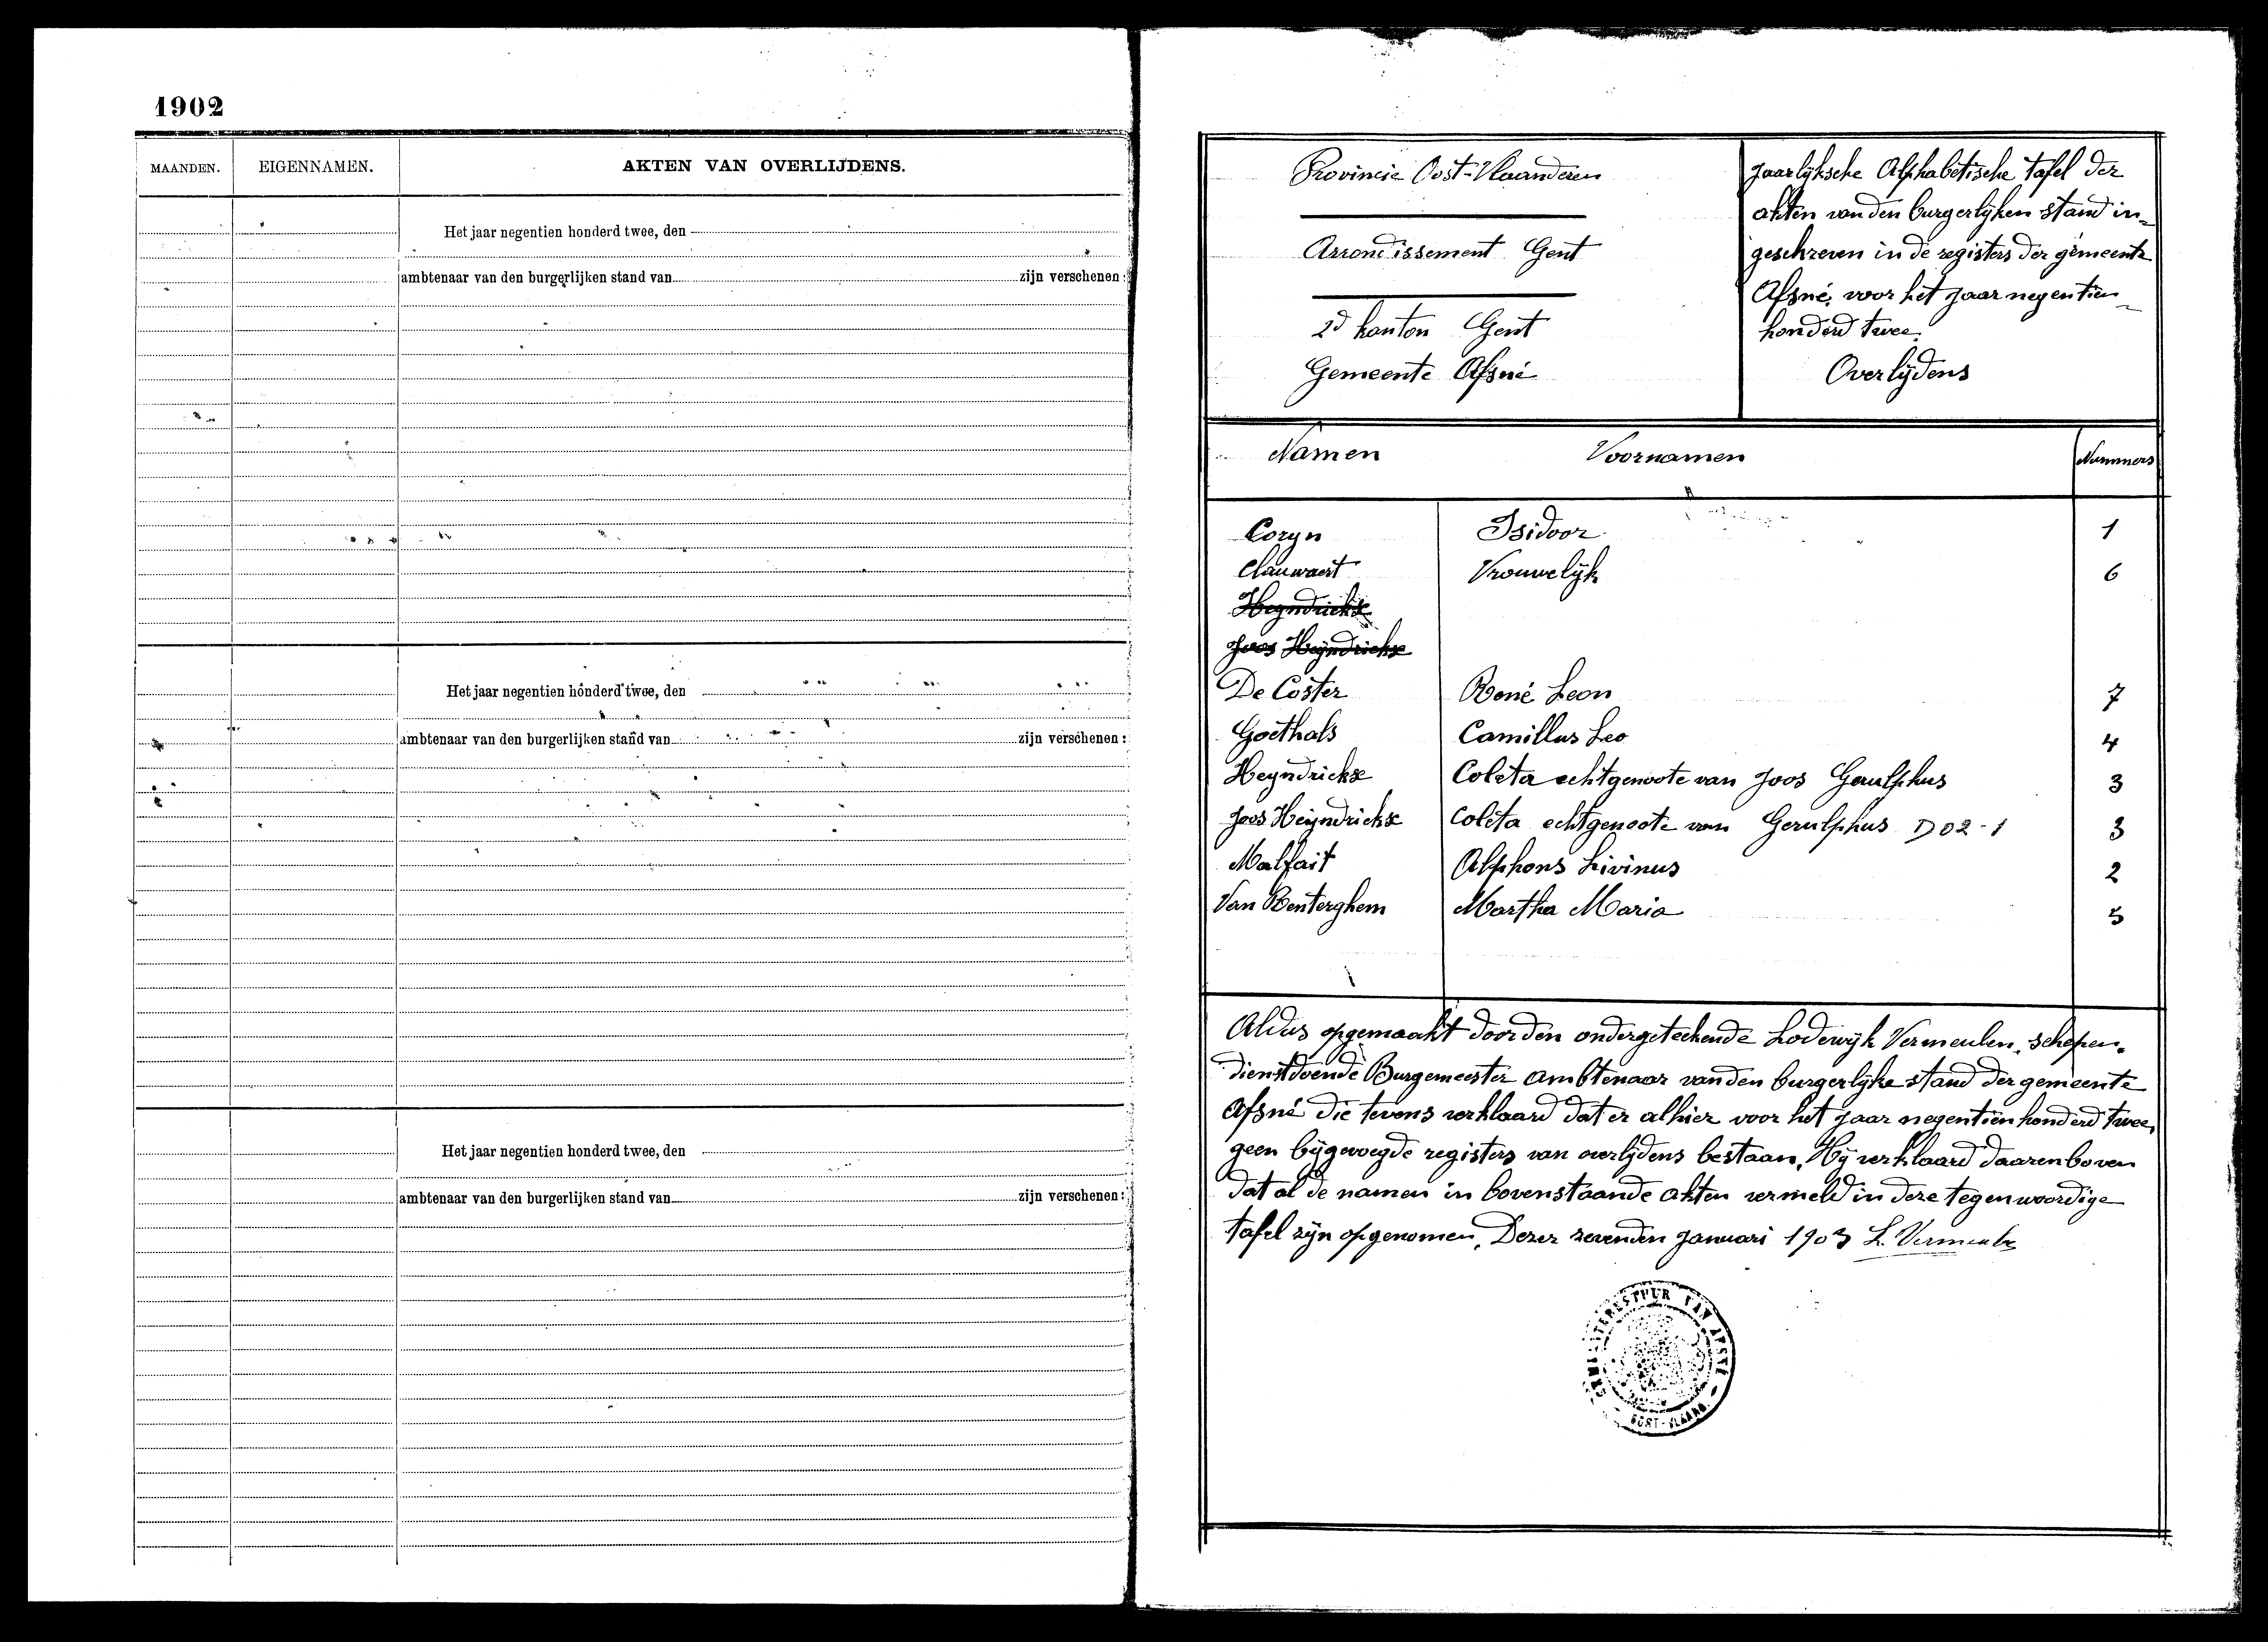 1902
MAANDEN. EIGENNAMEN. AKTEN VAN OVERLIJDENS.
Het jaar negentien honderd twee, den
ambtenaar van den burgerlijken stand van zijn verschenen:
Het jaar negentien honderd twee, den
ambtenaar van den burgerlijken stand van zijn verschenen:
Het jaar negentien honderd twee, den
ambtenaar van den burgerlijken stand van zijn verschenen:
Provincie Oost-Vlaanderen
Arrondissement Gent
2d kanton Gent
Gemeente Afsné
Jaarlyksche Alphabetische tafel der
akten van den burgerlijken stand in-
geschreven in de registers der gemeente
Afsné, voor het jaar negentien
honderd twee.
Overlijdens
Namen Voornamen Nummers
Coryn Isidoor 1
Clauwaert Vrouwelijk 6
Heyndrickx
Joos Heyndrickx
De Coster René Leon 7
Goethals Camillus Leo 4
Heyndrickx Coleta echtgenoote van Joos Gerulphus 3
Joos Heyndrickx Coleta echtgenoote van Gerulphus D02-1 3
Malfait Alphons Livinus 2
Van Renterghem Martha Maria 5
Aldus opgemaakt door den ondergeteekende Lodewijk Vermeulen, schepen.
dienstdoende Burgemeester Ambtenaar van den burgerlijke stand der gemeente
Afsné die tevens verklaard dat er alhier voor het jaar negentien honderd twee,
geen bijgevoegde registers van overlijdens bestaan. Hij verklaard daarenboven
dat al de namen in bovenstaande akten vermeld in deze tegenwoordige
tafel zijn opgenomen. Dezer zevenden Januari 1903 L. Vermeulen
GEMEENTEBESTUUR VAN AFSNÉ
OOST-VLAAND.